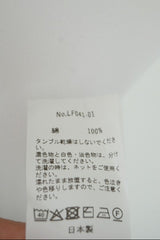 No.LF041-01
綿 100%
タンブル乾燥はしないでくださ
い。
濃色物と白色・淡色物は、分け
て洗濯してください。
洗濯の時は、ネットをご使用く
ださい。
濡れたまま放置すると、色泣き
や色移りしますので、ご注意下
さい。
日本製